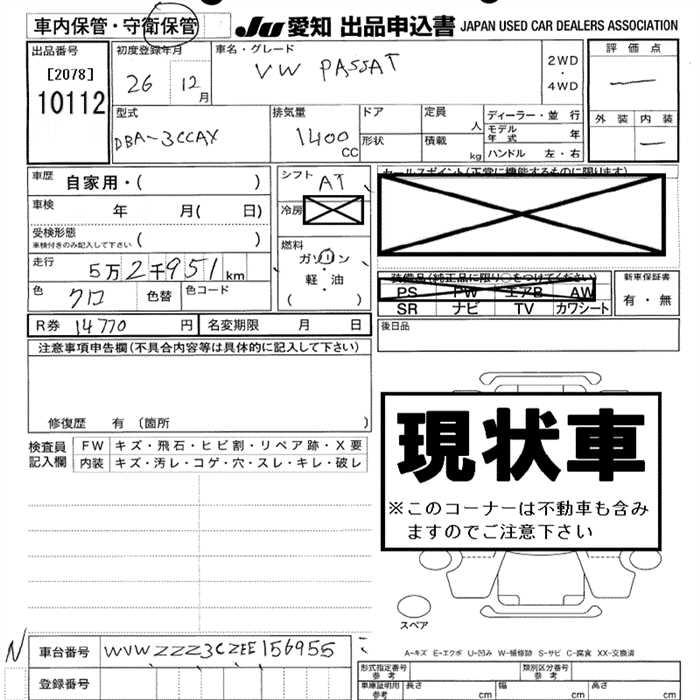 車内保管・守衛保管
JU 愛知 出品申込書 JAPAN USED CAR DEALERS ASSOCIATION
出品番号
[2078]
10112
初度登録年月
26 12月
車名・グレード
VW PASSAT
2WD
・
4WD
評価点
—
外装 内装
—
型式
DBA-3CCAX
排気量
1400 CC
ドア
形状
定員 人
積載 kg
ディーラー・並行
モデル年式 年
ハンドル 左・右
車歴 自家用・( )
車検 年 月( 日)
受検形態
車検付きのみ記入して下さい ( )
走行 5万2千951km
色 クロ 色替 色コード
R券 14770円 名変期限 月 日
シフト AT
冷房
燃料
ガソリン
軽・油
( )
セールスポイント(正常に機能するものに限ります)
装備品(純正品に限り○をつけてください)
PS PW エアB AW
SR ナビ TV カワシート
新車保証書
有・無
後日品
注意事項申告欄(不具合内容等は具体的に記入して下さい)
修復歴 有 (箇所 )
検査員記入欄
FW キズ・飛石・ヒビ割・リペア跡・X要
内装 キズ・汚レ・コゲ・穴・スレ・キレ・破レ
現状車
※このコーナーは不動車も含み
ますのでご注意下さい
スペア
A-キズ E-エクボ U-凹み W-補修跡 S-サビ C-腐食 XX-交換済
N
車台番号 WVWZZZ3CZEE156955
登録番号
形式指定番号
参考
類別区分番号
参考
車庫証明用
参考
長さ cm
幅 cm
高さ cm